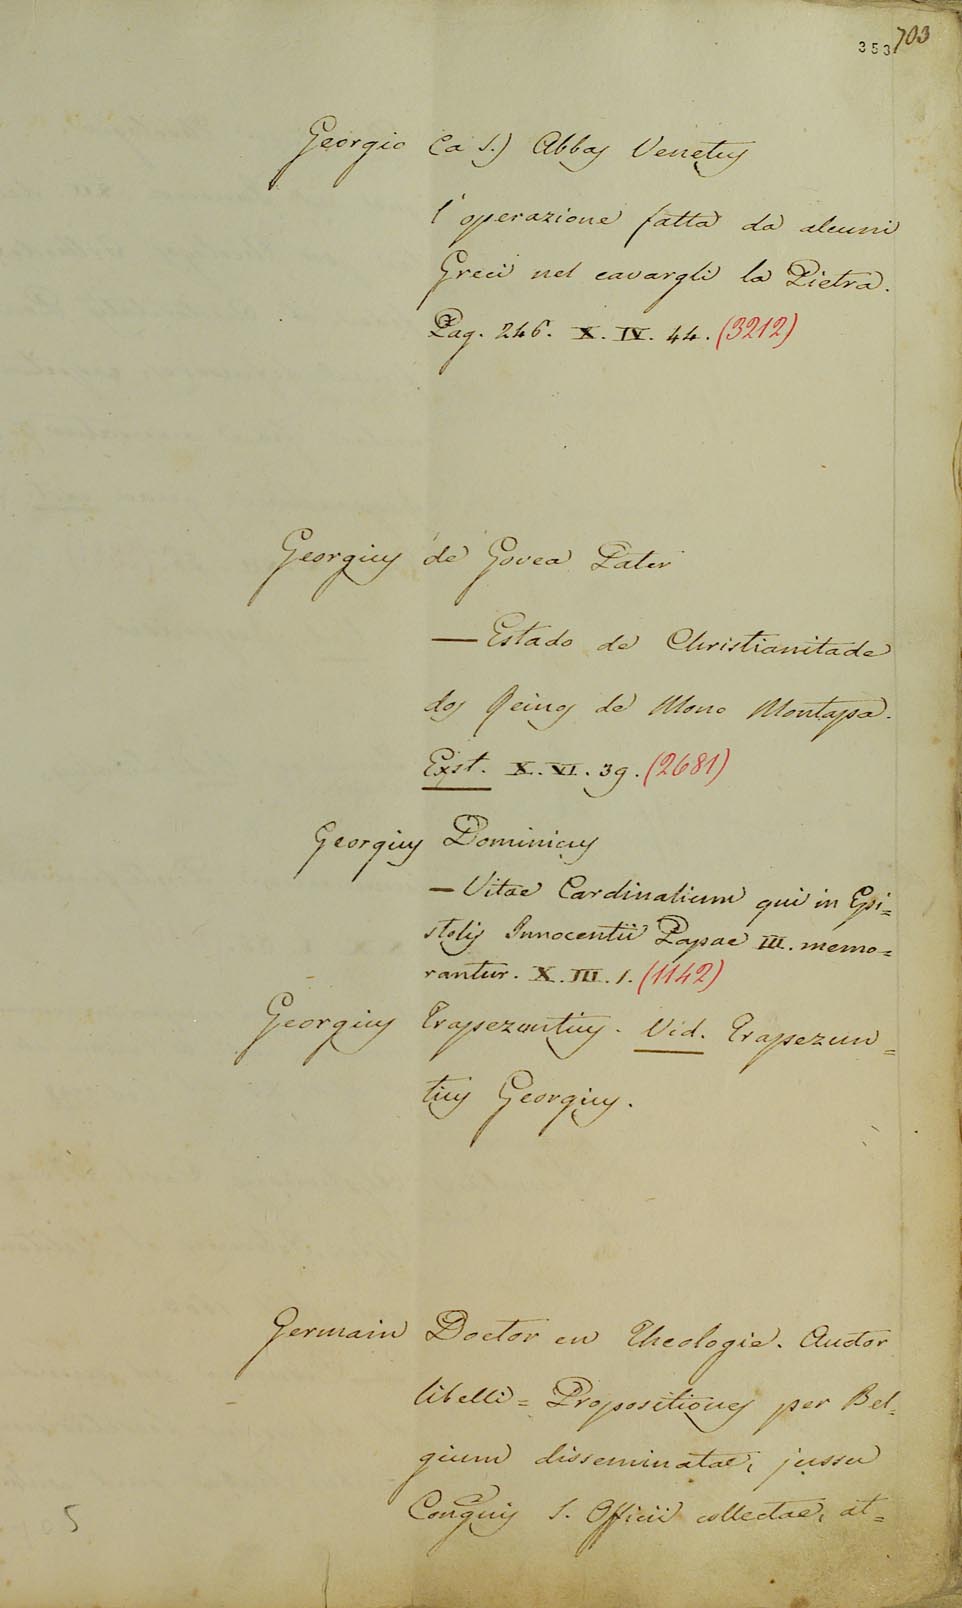 353 703
Georgio (a S.) Abbas Venetus
l'operazione fatta da alcuni
Greci nel cavargli la Pietra.
Pag. 246. X. IV. 44. (3212)
Georgius de Govea Pater
— Estado de Christianitade
dos Reinos de Mono Montapa.
Exst. X. VI. 39. (2681)
Georgius Dominicus
— Vitae Cardinalium qui in Epi=
stolis Innocentii Papae III. memo=
rantur. X. III. 1. (1142)
Georgius Trapezuntius. Vid. Trapezun=
tius Georgius.
Germain Doctor en Theologie. Auctor
libelli = Propositiones per Bel=
gium disseminatae, jussu
Congnis S. Officii collectae, at=
5